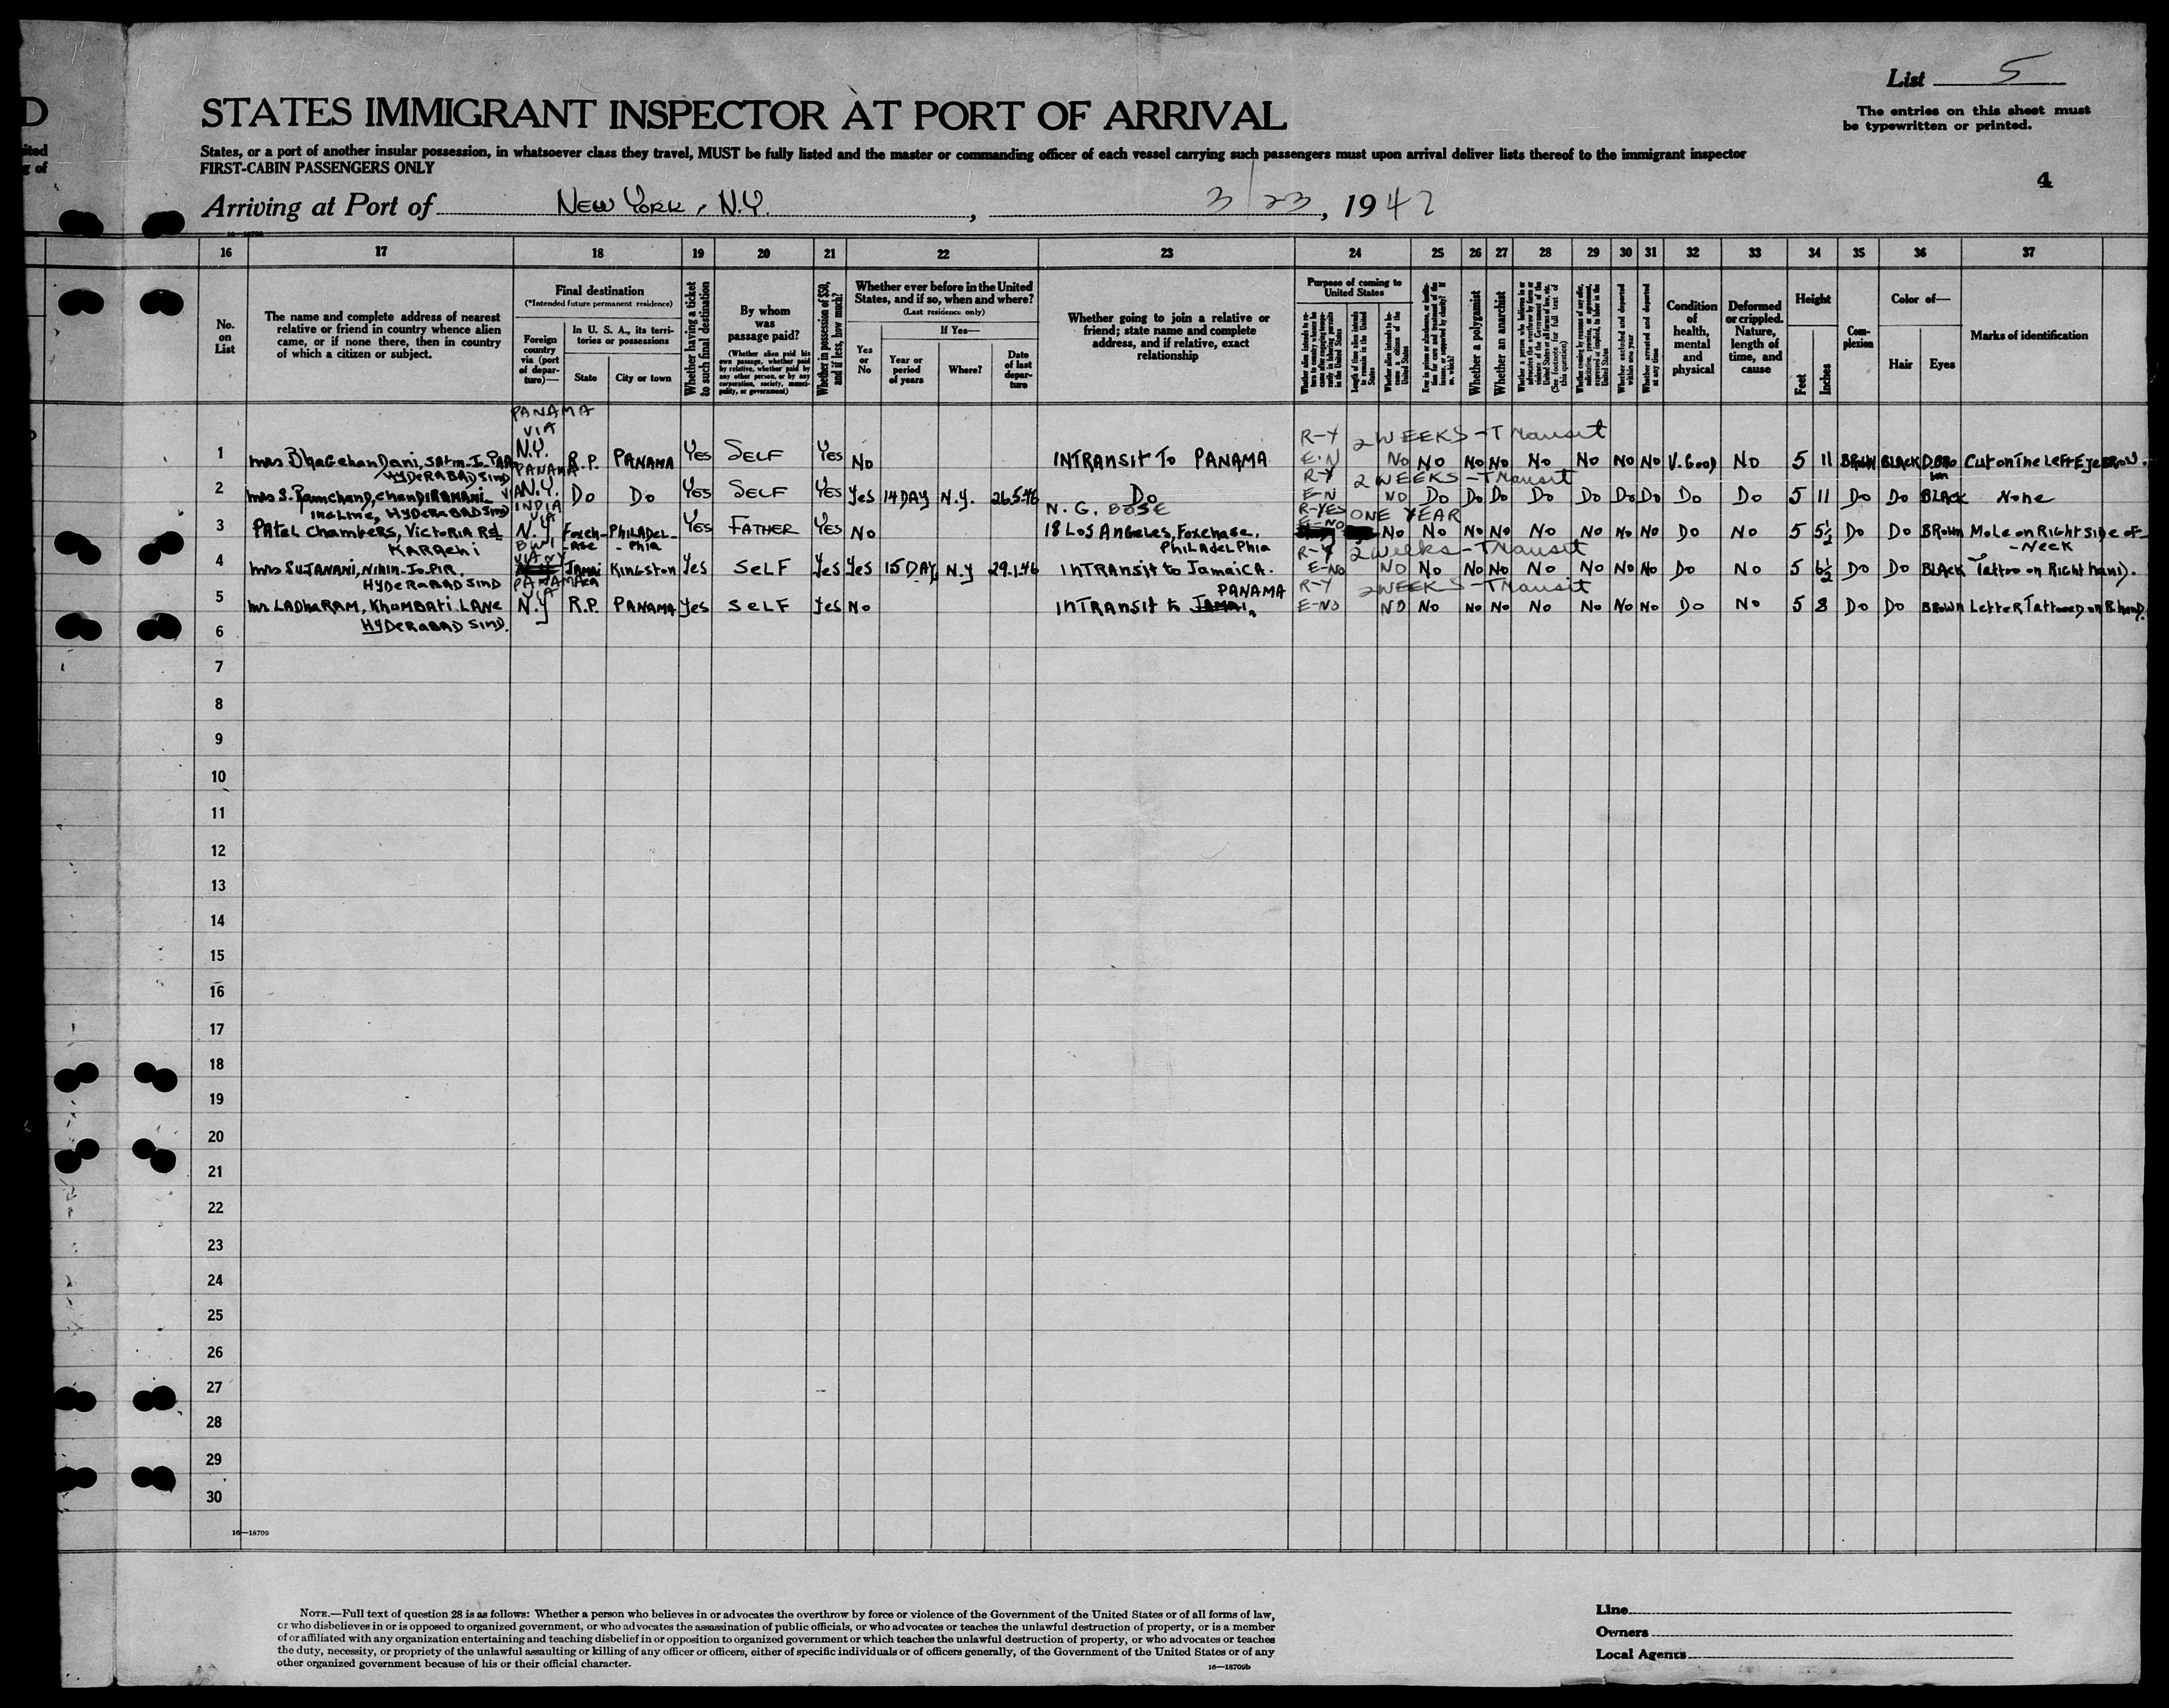 List 5
The entries on this sheet must
be typewritten or printed.
STATES IMMIGRANT INSPECTOR AT PORT OF ARRIVAL
States, or a port of another insular possession, in whatsoever class they travel, MUST be fully listed and the master or commanding officer of each vessel carrying such passengers must upon arrival deliver lists thereof to the immigrant inspector
FIRST-CABIN PASSENGERS ONLY
4
Arriving at Port of NEW YORK, N.Y. , 3/23, 1947
16 17 18 19 20 21 22 23 24 25 26 27 28 29 30 31 32 33 34 35 36 37
No.
on
List
The name and complete address of nearest
relative or friend in country whence alien
came, or if none there, then in country
of which a citizen or subject.
Final destination
(*Intended future permanent residence)
Foreign
country
via (port
of depar-
ture)—
In U. S. A., its terri-
tories or possessions
State
City or town
Whether having a ticket
to such final destination
By whom
was
passage paid?
(Whether alien paid his
own passage, whether paid
by relative, whether paid by
any other person, or by any
corporation, society, munici-
pality, or government)
Whether in possession of $50,
and if less, how much?
Whether ever before in the United
States, and if so, when and where?
(Last residence only)
Yes
or
No
If Yes—
Year or
period
of years
Where?
Date
of last
depar-
ture
Whether going to join a relative or
friend; state name and complete
address, and if relative, exact
relationship
Purpose of coming to
United States
Length of time alien intends
to remain in the United
States
Whether alien intends to be-
come a citizen of the
United States
Whether a polygamist
Whether an anarchist
Whether excluded and deported
within one year
Whether arrested and deported
at any time
Condition
of
health,
mental
and
physical
Deformed
or crippled.
Nature,
length of
time, and
cause
Height
Feet
Inches
Com-
plexion
Color of—
Hair
Eyes
Marks of identification
PANAMA
VIA
1 Mrs BhaGchanDani, HYDERABAD SIND N.Y. R.P. PANAMA YES SELF YES No INTRANSIT TO PANAMA R-Y E-N 2 WEEKS - Transit No No No No No No No No V. Good No 5 11 BROWN BLACK Cut on The Left Eye BROW.
PANAMA
2 Mrs S. Ramchand, HYDERABAD SIND N.Y. Do Do YES SELF YES Yes 14 DAY N.Y. 26.5.46 Do R-Y E-N 2 WEEKS - Transit No Do Do Do Do Do Do Do Do Do 5 11 Do Do BLACK None
INDIA
VIA
3 Patel Chambers, Victoria Rd KARAchi N.Y Foxch-ase PhilADEL-Phia YES FATHER YES No N. G. BOSE 18 Los Angeles, Foxchase, PhilAdelPhia R-YES E-NO ONE YEAR No No No No No No No No Do No 5 5½ Do Do BROWN Mole on Right side of -Neck
4 Mrs SUJANANI, HYDERABAD SIND Jamaica Kingston Yes SELF Yes Yes 15 DAY N.Y 29.1.46 INTRANSIT to JamaicA. R-Y E-No 2 Weeks - Transit No No No No No No No No Do No 5 6½ Do Do BLACK Tattoo on Right hand.
PANAMA
VIA
5 LADHARAM, KhUMBATi LANE HYDERABAD SIND. N.Y R.P. PANAMA Yes SELF Yes No INTRANSIT to PANAMA R-Y E-NO 2 WEEKS - Transit No No No No No No No No Do No 5 8 Do Do BROWN Letter Tattooed on R hand.
6
7
8
9
10
11
12
13
14
15
16
17
18
19
20
21
22
23
24
25
26
27
28
29
30
16—18709
NOTE.—Full text of question 28 is as follows: Whether a person who believes in or advocates the overthrow by force or violence of the Government of the United States or of all forms of law,
or who disbelieves in or is opposed to organized government, or who advocates the assassination of public officials, or who advocates or teaches the unlawful destruction of property, or is a member
of or affiliated with any organization entertaining and teaching disbelief in or opposition to organized government or which teaches the unlawful destruction of property, or who advocates or teaches
the duty, necessity, or propriety of the unlawful assaulting or killing of any officer or officers, either of specific individuals or of officers generally, of the Government of the United States or of any
other organized government because of his or their official character.
16—18709b
Line
Owners
Local Agents